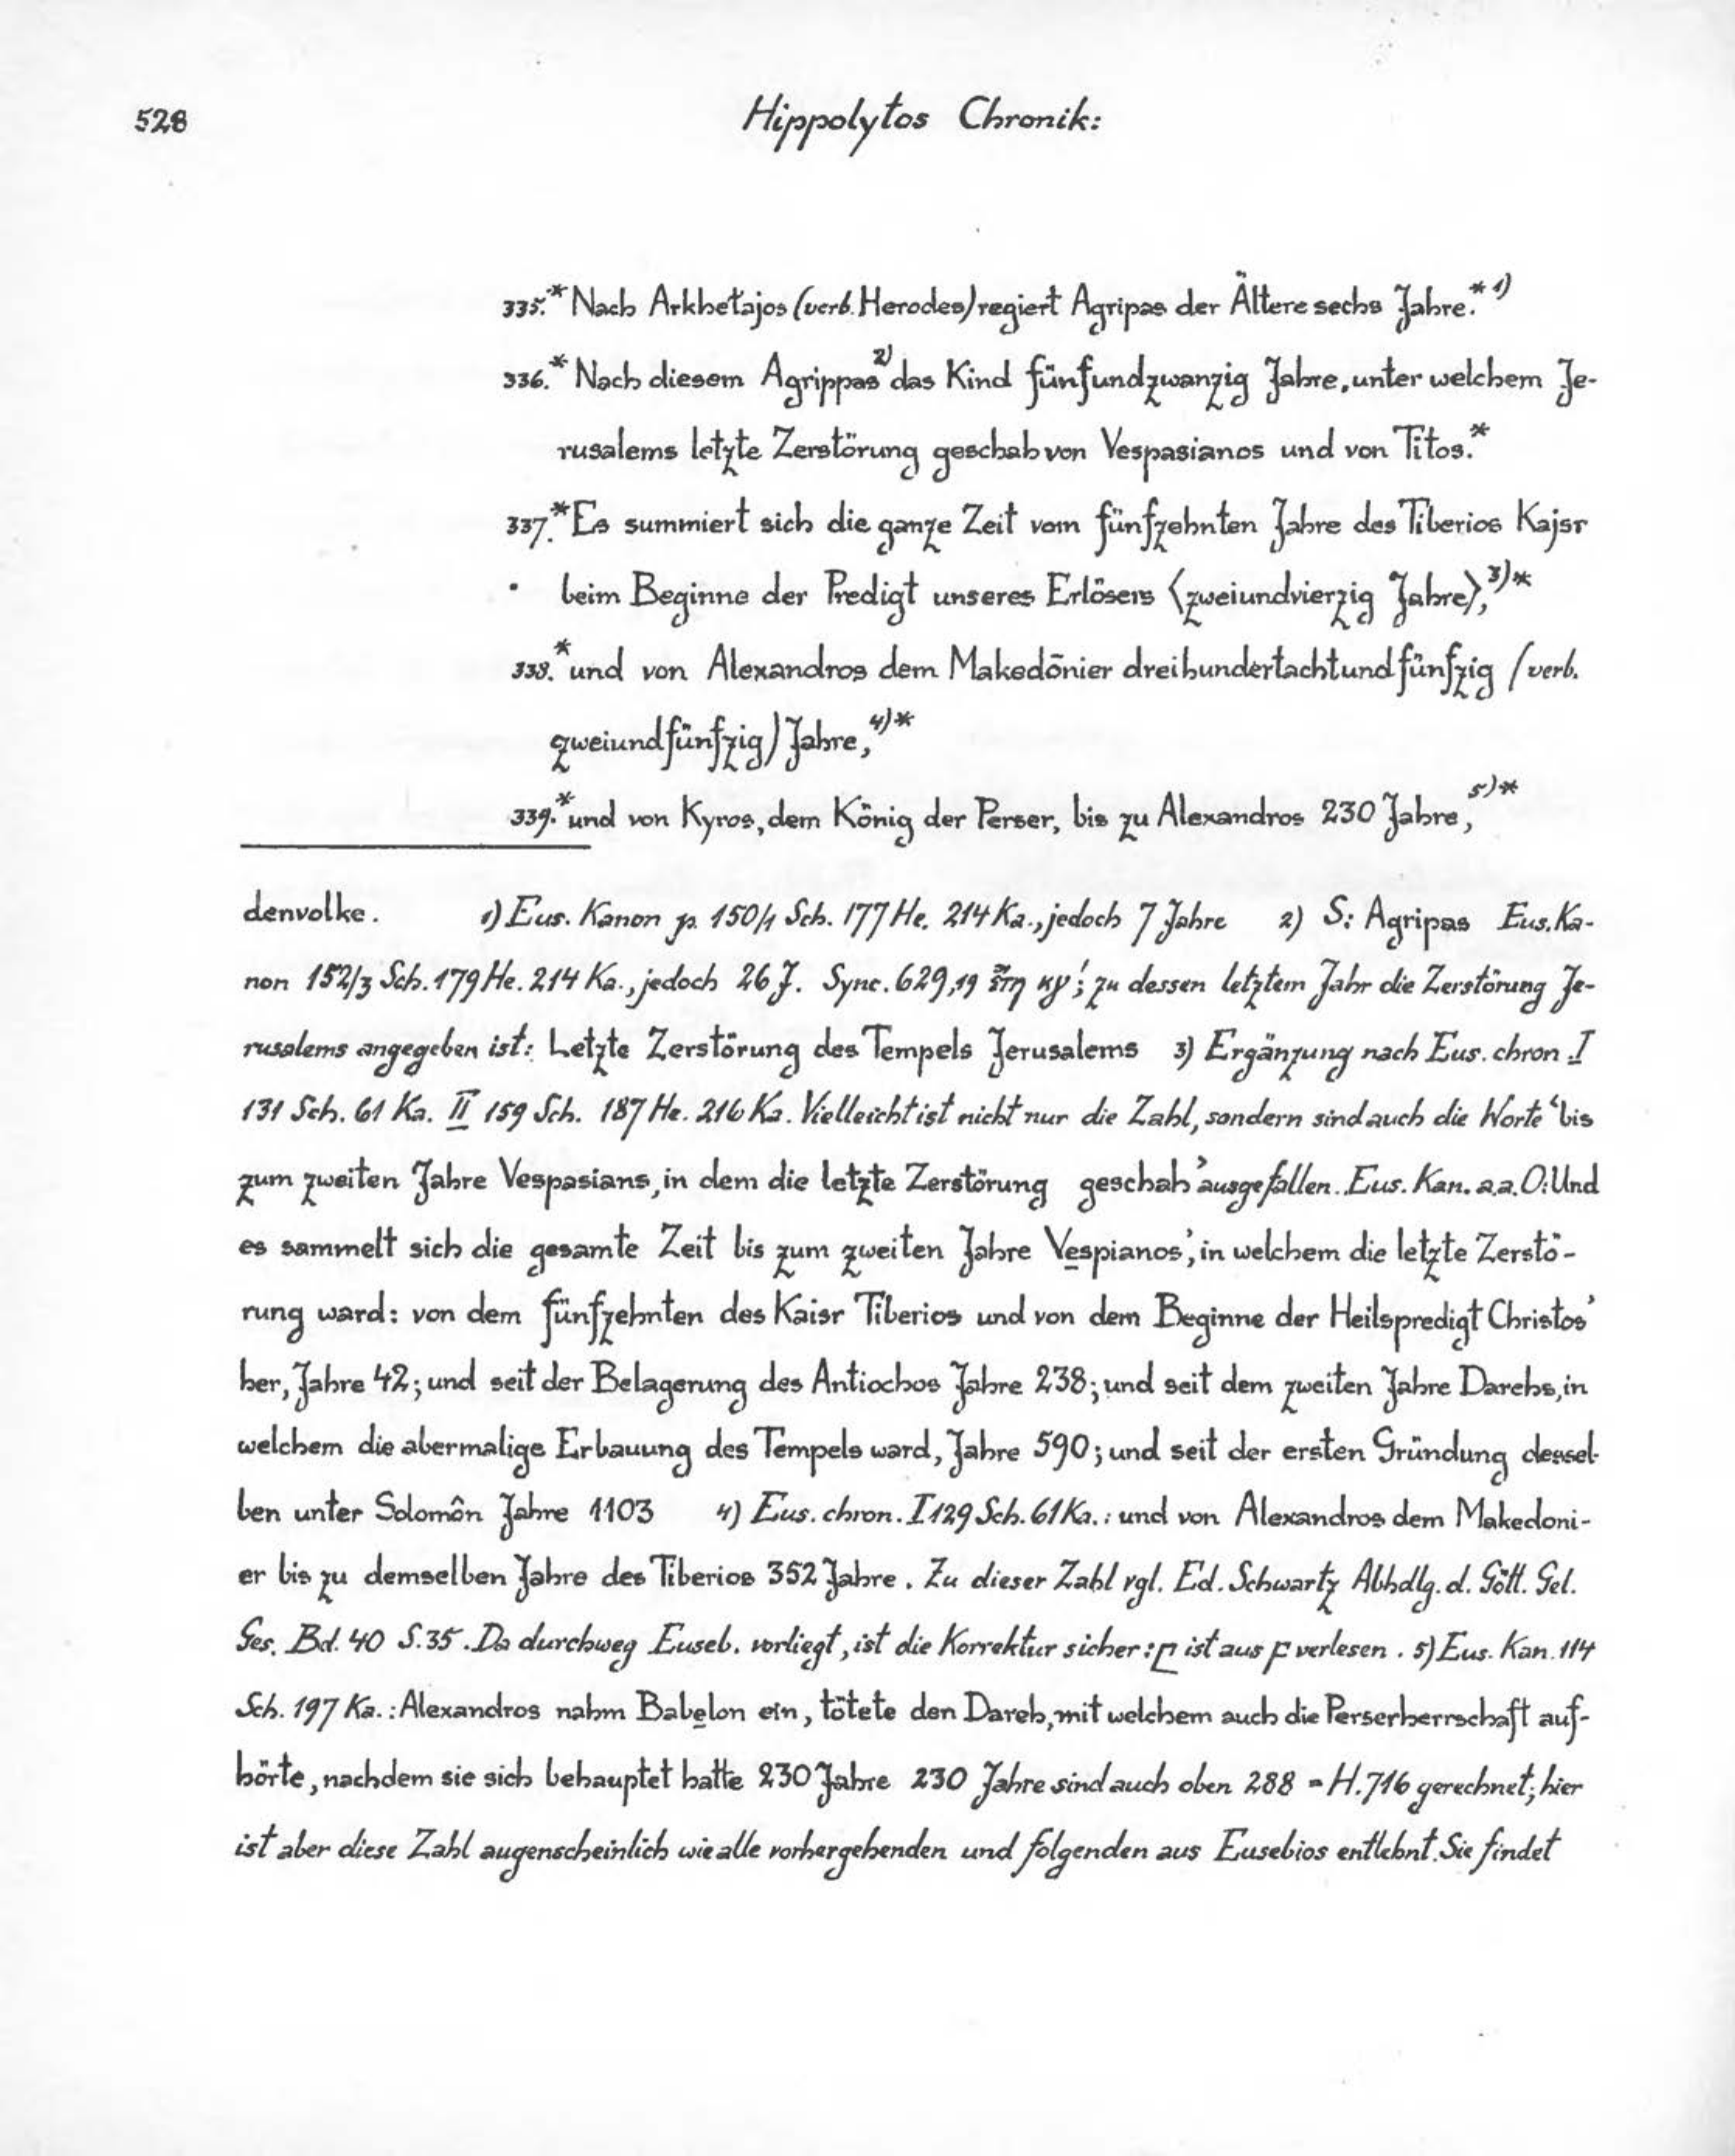 528 Hippolytos Chronik:
335.* Nach Arkhetajos (verb. Herodes) regiert Agripas der Ältere sechs Jahre.* 1)
336.* Nach diesem Agrippas 2) das Kind fünfundzwanzig Jahre, unter welchem Je-
rusalems letzte Zerstörung geschah von Vespasianos und von Titos.*
337.* Es summiert sich die ganze Zeit vom fünfzehnten Jahre des Tiberios Kajsr
beim Beginne der Predigt unseres Erlösers ⟨zweiundvierzig Jahre⟩, 3)*
338.* und von Alexandros dem Makedōnier dreihundertachtundfünfzig (verb.
zweiundfünfzig) Jahre, 4)*
339.* und von Kyros, dem König der Perser, bis zu Alexandros 230 Jahre, 5)*
denvolke. 1) Eus. Kanon p. 150/1 Sch. 177 He. 214 Ka., jedoch 7 Jahre 2) S: Agripas Eus. Ka-
non 152/3 Sch. 179 He. 214 Ka., jedoch 26 J. Sync. 629,19 ἔτη κγ'; zu dessen letztem Jahr die Zerstörung Je-
rusalems angegeben ist: Letzte Zerstörung des Tempels Jerusalems 3) Ergänzung nach Eus. chron. I
131 Sch. 61 Ka. II 159 Sch. 187 He. 216 Ka. Vielleicht ist nicht nur die Zahl, sondern sind auch die Worte ‘bis
zum zweiten Jahre Vespasians, in dem die letzte Zerstörung geschah’ ausgefallen. Eus. Kan. a.a.O: Und
es sammelt sich die gesamte Zeit bis zum zweiten Jahre Vespianos’, in welchem die letzte Zerstö-
rung ward: von dem fünfzehnten des Kaisr Tiberios und von dem Beginne der Heilspredigt Christos’
her, Jahre 42; und seit der Belagerung des Antiochos Jahre 238; und seit dem zweiten Jahre Darehs, in
welchem die abermalige Erbauung des Tempels ward, Jahre 590; und seit der ersten Gründung dessel-
ben unter Solomôn Jahre 1103 4) Eus. chron. I 129 Sch. 61 Ka.: und von Alexandros dem Makedoni-
er bis zu demselben Jahre des Tiberios 352 Jahre. Zu dieser Zahl vgl. Ed. Schwartz Abhdlg. d. Gött. Gel.
Ges. Bd. 40 S. 35. Da durchweg Euseb. vorliegt, ist die Korrektur sicher: ist aus verlesen. 5) Eus. Kan. 114
Sch. 197 Ka.: Alexandros nahm Babelon ein, tötete den Dareh, mit welchem auch die Perserherrschaft auf-
hörte, nachdem sie sich behauptet hatte 230 Jahre 230 Jahre sind auch oben 288 = H. 716 gerechnet; hier
ist aber diese Zahl augenscheinlich wie alle vorhergehenden und folgenden aus Eusebios entlehnt. Sie findet